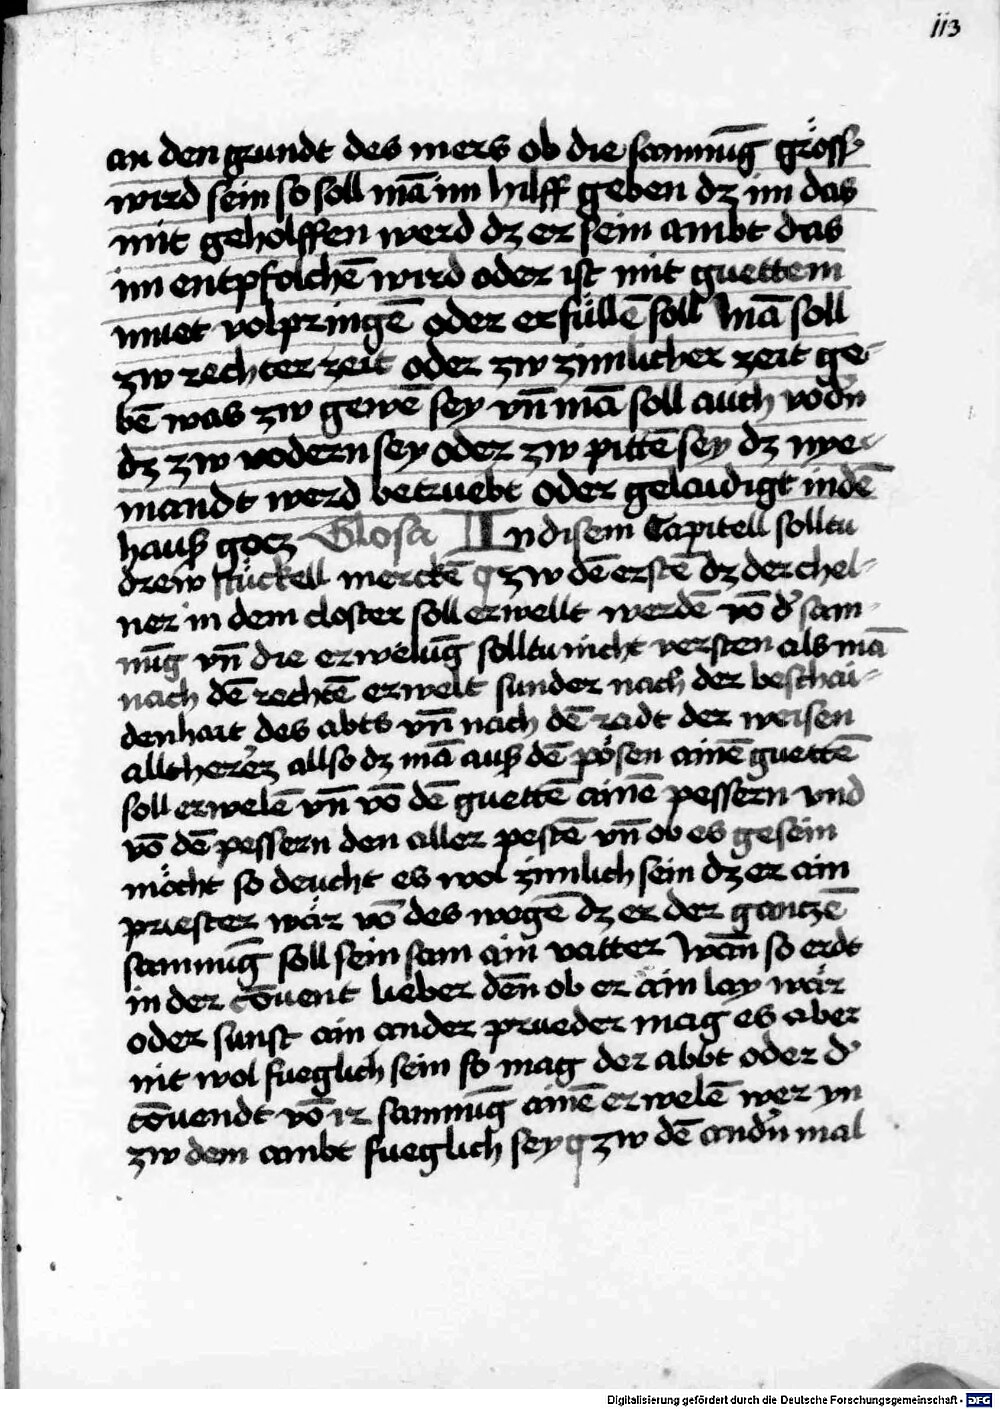 113
an den grundt des mers ob die sammūg grösß
wird sein so soll mā im hilff geben dz im das
mit geholffen werd dz er sein ambt das
im entpfolchē wird oder ist mit guettem
muet volpringē oder erfüllē soll Mā soll
zw rechter zeit oder zw zimlicher zeit ge-
bē was zw gewē sey vn̄ mā soll auch vod'n
dz zw vodern sey oder zw pittē sey dz nye-
mandt werd betruebt oder gelaudigt in dē
hauß gocz Glosa In disem Capitell solltu
drew stückell merckē zw dē erstē dz der chel-
ner in dem closter soll erwellt werdē vō d' sam-
nūg vn̄ die erwelūg solltu nicht versten als mā
nach dē rechtē erwelt sunder nach der beschai-
denhait des abts vn̄ nach dē radt der weisen
allso dz mā auß dē pösen ainē guettē
soll erwelē vn̄ vō dē guettē ainē pessern vnd
vō dē pessern den aller pestē vn̄ ob es gesein
möcht so deucht es wol zimlich sein dz er ain
priester wär vō des wegē dz er der gantzē
sammūg soll sein sam ain vatter wan̄ so erdt
in der cōuent lieber den̄ ob er ain lay wär
oder sunst ain ander prueder mag es aber
nit wol fueglich sein so mag der abbt oder d'
cōuendt vō ir sammūg ainē erwelē wer yn
zw dem ambt fueglich sey zw dē and'n mal
Digitalisierung gefördert durch die Deutsche Forschungsgemeinschaft - DFG